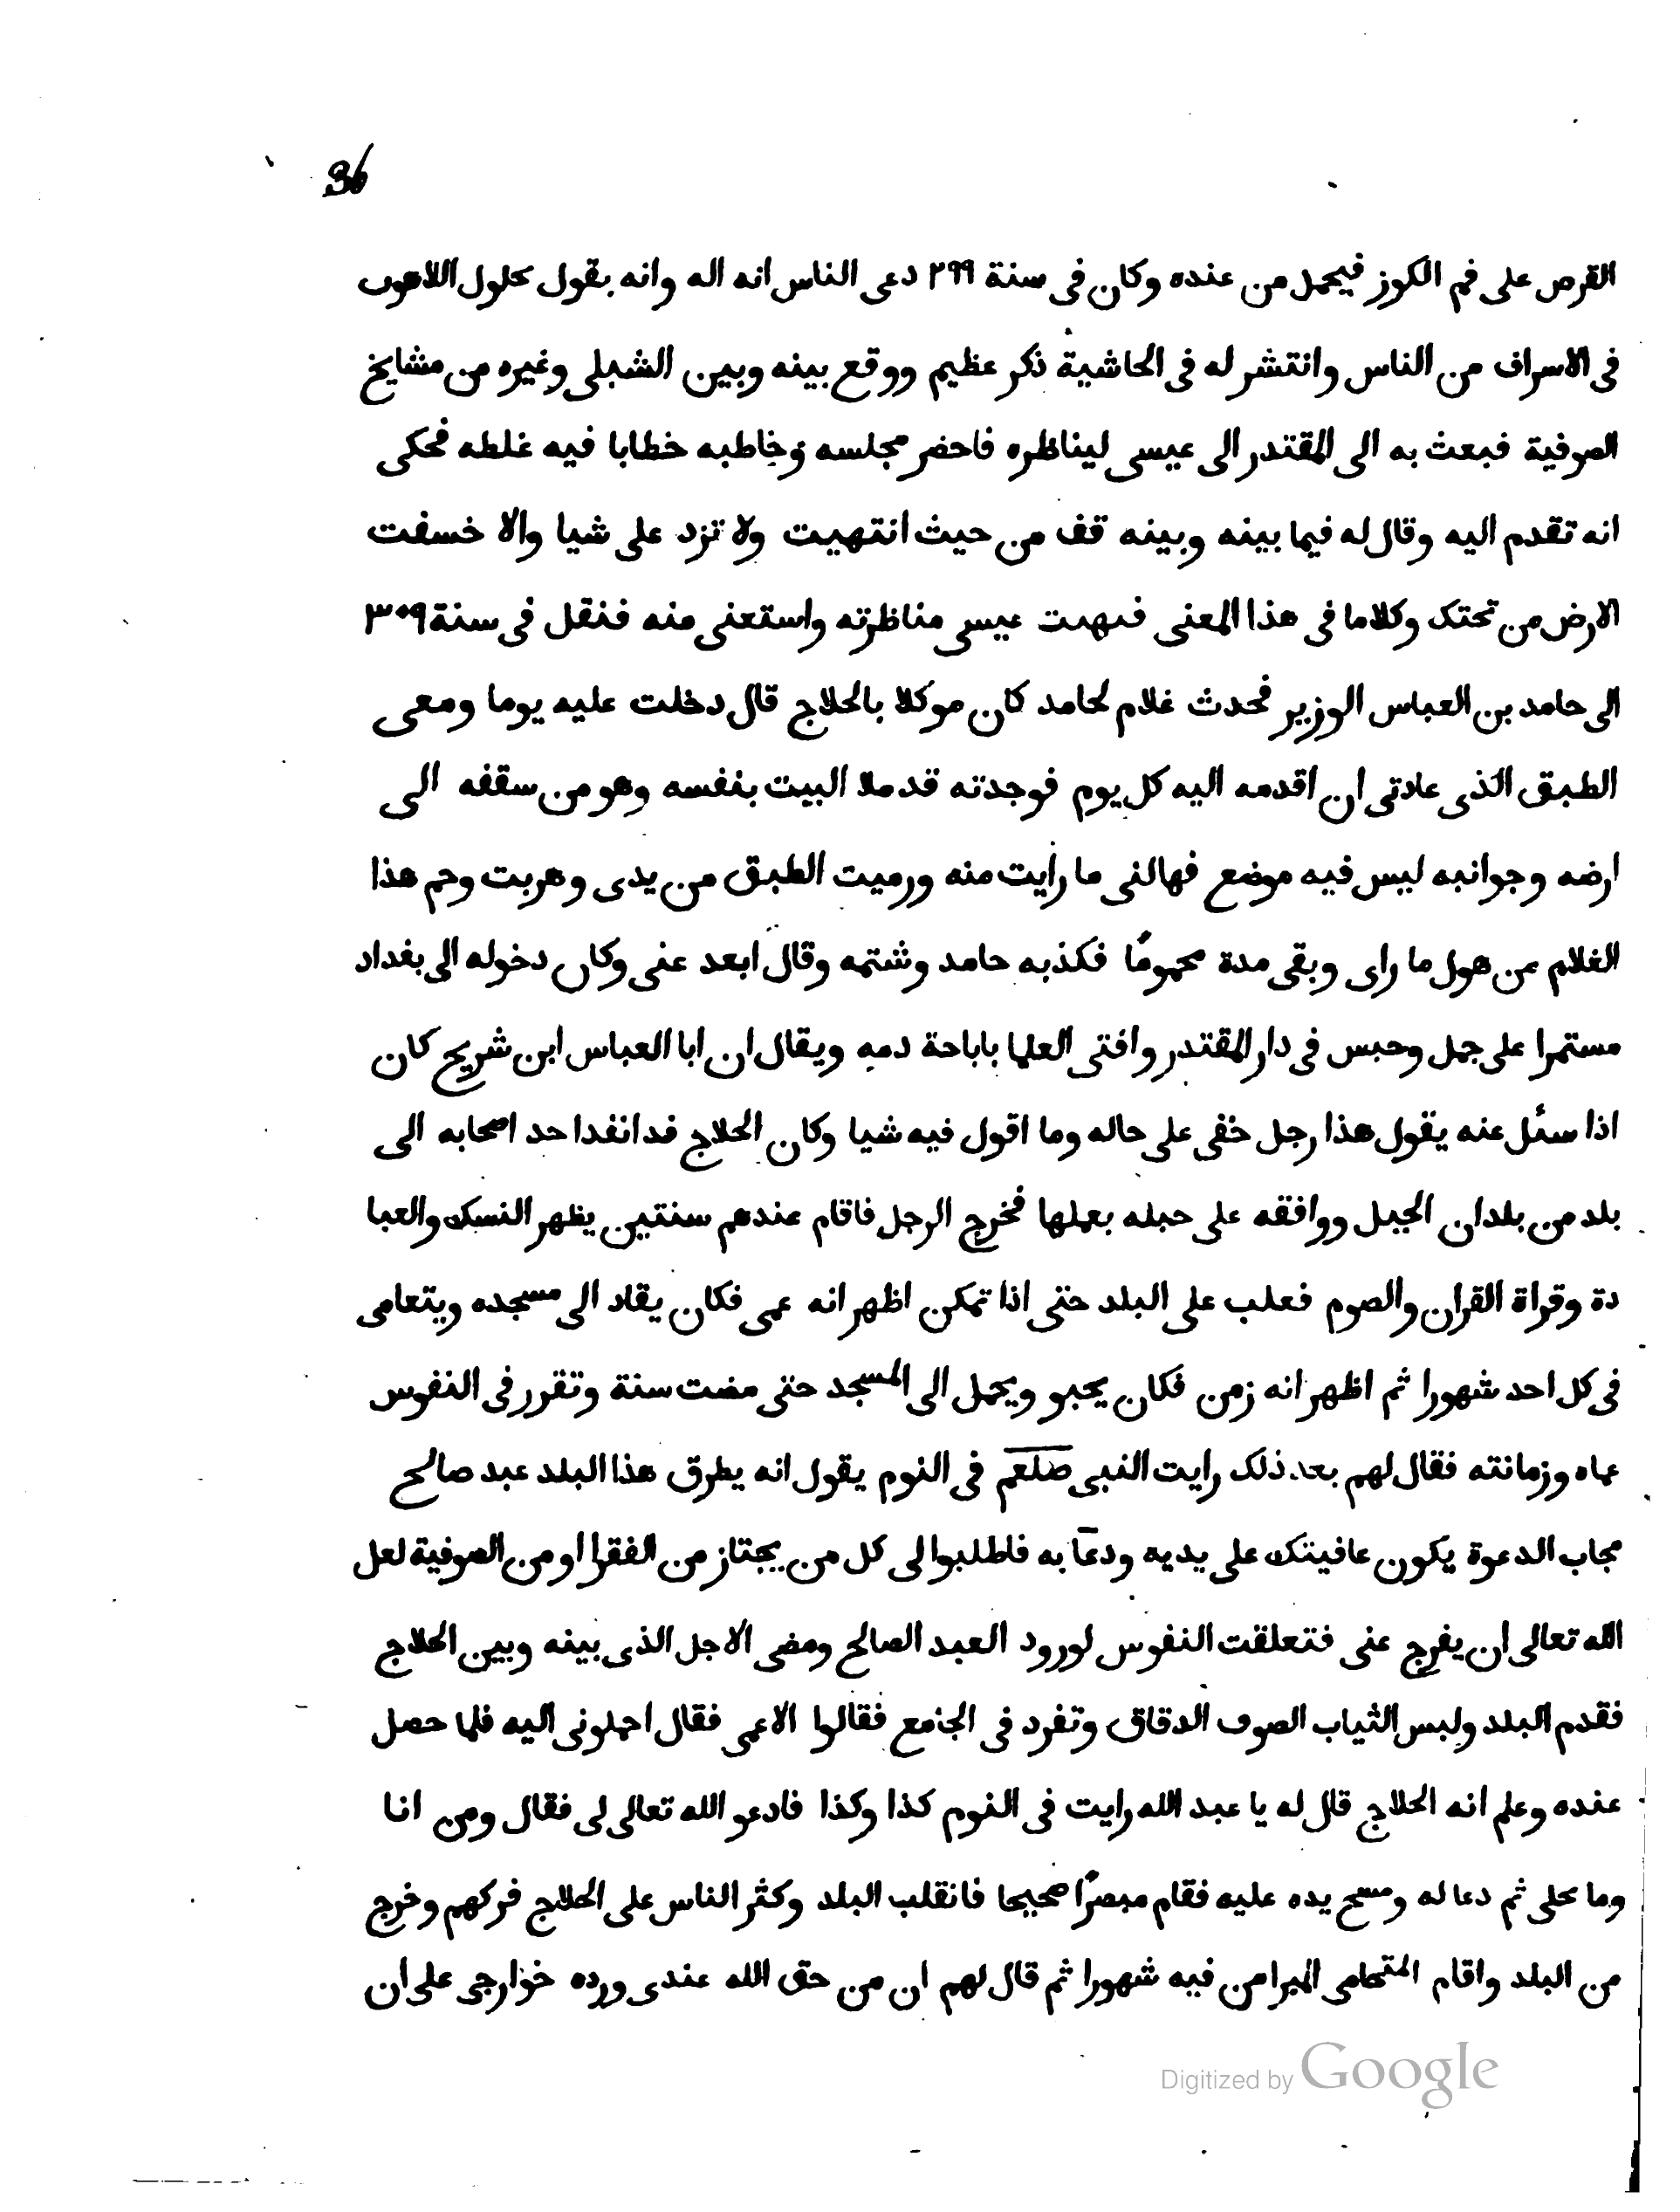 36
القرص على فم الكوز فيحمل من عنده وكان فى سنة ٢٩٩ دعى الناس انه اله وانه بقول بحلول اللاهوت
فى الاسراف من الناس وانتشر له فى الحاشية ذكر عظيم ووقع بينه وبين الشبلى وغيره من مشايخ
الصوفية فبعث به الى المقتدر الى عيسى ليناظره فاحضر مجلسه وخاطبه خطابا فيه غلطه فحكى
انه تقدم اليه وقال له فيما بينه وبينه قف من حيث انتهيت ولا تزد على شيا والا خسفت
الارض من تحتك وكلاما فى هذا المعنى فبهت عيسى مناظرته واستعنى منه فنقل فى سنة ٣٠٩
الى حامد بن العباس الوزير فحدث غلام لحامد كان موكلا بالحلاج قال دخلت عليه يوما ومعى
الطبق الذى عادتى ان اقدمه اليه كل يوم فوجدته قد ملا البيت بنفسه وهو من سقفه الى
ارضه وجوانبه ليس فيه موضع فهالنى ما رايت منه ورميت الطبق من يدى وهربت وحم هذا
الغلام من هول ما راى وبقى مدة محموما فكذبه حامد وشتمه وقال ابعد عنى وكان دخوله الى بغداد
مستمرا على جمل وحبس فى دار المقتدر وافتى العلما باباحة دمه ويقال ان ابا العباس ابن شريح كان
اذا سئل عنه يقول هذا رجل خفى على حاله وما اقول فيه شيا وكان الحلاج قد انفد احد اصحابه الى
بلد من بلدان الجبل ووافقه على حبله بعملها فخرج الرجل فاقام عندهم سنتين يظهر النسك والعبا
دة وقراة القران والصوم فعلب على البلد حتى اذا تمكن اظهر انه عمى فكان يقاد الى مسجده ويتعامى
فى كل احد شهورا ثم اظهر انه زمن فكان يحبو ويحمل الى المسجد حتى مضت سنة وتقرر فى النفوس
عماه وزمانته فقال لهم بعد ذلك رايت النبى صلعم فى النوم يقول انه يطرق هذا البلد عبد صالح
مجاب الدعوة يكون عافيتك على يديه ودعآ به فاطلبوا لى كل من يجتاز من الفقرا او من الصوفية لعل
الله تعالى ان يفرج عنى فتعلقت النفوس لورود العبد الصالح ومضى الاجل الذى بينه وبين الحلاج
فقدم البلد ولبس الثياب الصوف الدقاق وتفرد فى الجامع فقالوا الاعمى فقال احملونى اليه فلما حصل
عنده وعلم انه الحلاج قال له يا عبد الله رايت فى النوم كذا وكذا فادعو الله تعالى لى فقال ومن انا
وما محلى ثم دعا له ومسح يده عليه فقام مبصرًا صحيحا فانقلب البلد وكثر الناس على الحلاج فركهم وخرج
من البلد واقام المتحامى المبرا من فيه شهورا ثم قال لهم ان من حق الله عندى ورده خوارجى على ان
Digitized by Google